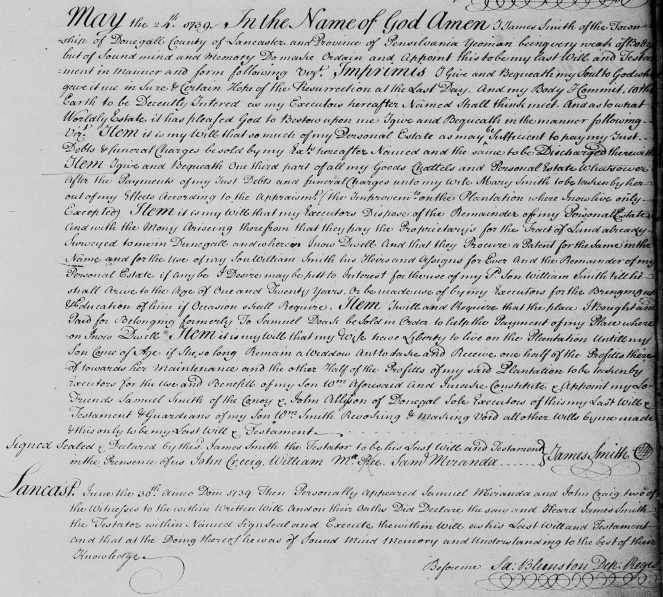 May the 24th. 1739. In the Name of God Amen I James Smith of the Town-
ship of Donegall County of Lancaster and Province of Pensilvania Yeoman being very weak of Body
but of Sound mind and Memory Do make Ordain and Appoint this to be my last Will and Testa-
ment in Manner and form following Vizt. Imprimis I Give and Bequeath my Soul to God who
gave it me in Sure & Certain Hope of the Resurrection at the Last Day. And my Body I Commit to the
Earth to be Decently Intered as my Executors hereafter Named Shall think meet. And as to what
Worldly Estate, it has pleased God to Bestow upon me I give and Bequeath in the manner following
Vizt. Item it is my Will that so much of my Personal Estate as may be Sufficient to pay my Just
Debts & funeral Charges be sold by my Exrs. hereafter Named and the same to be Discharged therewith
Item I give and Bequeath One third part of all my Goods Chattels and Personal Estate whatsoever
After the Payments of my Just Debts and funeral Charges unto my wife Mary Smith to be taken by her
out of my Effects According to the Appraismt. (the Improvemts. on the Plantation where I now live only
Excepted) Item it is my Will that my Executors Dispose of the Remainder of my Personal Estate
And with the Mony Ariseing therefrom that they pay the Proprietarys for the Tract of Land already
Surveyed to me in Dunegall and whereon I now Dwell And that they Procure a Patent for the Same in the
Name and for the Use of my Son William Smith his Heirs and Assigns for Ever And the Remainder of my
Personal Estate if any be I Desire may be put to Interest for the use of my Sd. Son William Smith till he
shall arive to the Age of One and Twenty Years. Or be made use of by my Executors for the Bringing up
& Education of him if Occasion shall Require. Item I will and Require that the place I bought and
Paid for Belonging formerly To Samuel Doak be Sold in Order to help the Payment of my Place where-
on I now Dwell Item it is my Will that my Wife have Liberty to live on the Plantation Untill my
Son Come of Age if she so long Remain a Widdow And to take and Receive one half of the Proffits there
of towards her Maintenance and the other Half of the Proffits of my said Plantation to be taken by
Executors for the Use and Benefit of my Son Wm. Aforesaid And I likewise Constitute & Appoint my
Friends Samuel Smith of the Conoy & John Allison of Donegal Sole Executors of this my Last Will &
Testament & Guardians of my Son Wm. Smith Revoking & Making Void all other Wills by me made
& this only to be my Last Will & Testament
Signed Sealed & Declared by the sd. James Smith the Testator to be his Last Will and Testament
in the Presence of us John Creeig, William Saml. Miranda James Smith
Lancastr. June the 30th. Anno Dom 1739 Then Personally Appeared Samuel Miranda and John Craig two of
the Witnesses to the within Written Will And on their Oaths Did Declare the saw and Heard James Smith
the Testator within Named Sign Seal and Execute the within Will as his Last Will and Testament
And that at the Doing thereof he was of Sound Mind Memory and Understanding to the best of their
Knowledge.
Before me Sa: Blunston Dep. Regr.